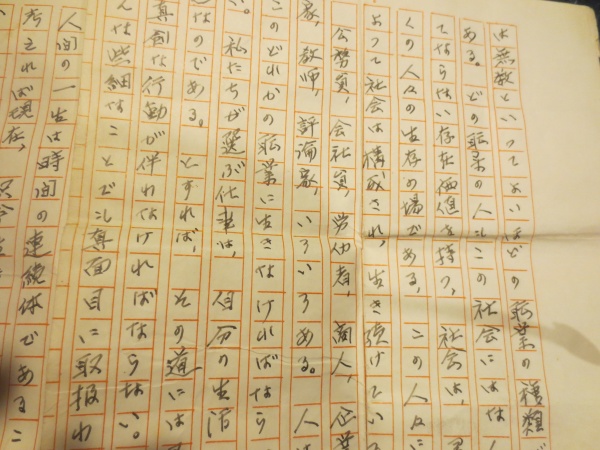 は無数といってよいほどの職業の種類が
ある。どの職業の人もこの社会にはな
てならない存在価値を持つ。社会は、
くの人々の生存の場である。この人々に
よって社会は構成され、生き続けている
公務員、会社員、労働者、商人、企業
家、教師、評論家、いろいろある。人
このどれかの職業に生きなければなら
い。私たちが選ぶ仕事は、自分の生活
なのである。とすれば、その道には
真剣な行動が伴わなければならない。
んな些細なことでも真面目に取扱わ
人間の一生は時間の連続体であるこ
考えれば現在、